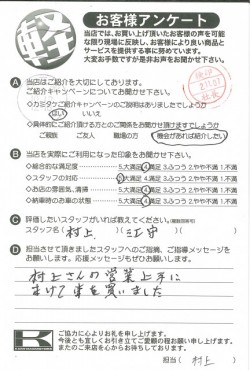 軽
お客様アンケート
当店では、お買い上げ頂いたお客様の声を可能
な限り現場に反映し、お客様により良い商品と
サービスを提供する事に努めています。
大変お手数ですが是非お声をお聞かせ下さい。
A 当店はご紹介を大切にしております。
ご紹介キャンペーンについてお聞かせ下さい。
ご紹介キャンペーンのご説明はありましたでしょうか
はい いいえ
◇具体的にご紹介頂ける方とのご関係をお聞かせ頂けますでしょうか
ご親族 ご友人 職場の方 機会があれば紹介したい
B 当店を実際にご利用になった印象をお聞かせ下さい。
◇総合的な満足度 5.大満足 4.満足 3.ふつう 2.やや不満 1.不満
◇スタッフの対応 5.大満足 4.満足 3.ふつう 2.やや不満 1.不満
◇お店の雰囲気、清掃 5.大満足 4.満足 3.ふつう 2.やや不満 1.不満
◇納車時のお車の状態 5.大満足 4.満足 3.ふつう 2.やや不満 1.不満
C 評価したいスタッフがいれば教えてください。(複数回答可)
スタッフ名( 村上、江守 )
D 担当させて頂きましたスタッフへのご指摘、ご指導メッセージを
お願いします。応援メッセージもぜひお願いします。
村上さんの営業上手に
まけて車を買いました
K
ご協力に心よりお礼を申し上げます。
今後とも宜しくお引き立てご愛顧の程お願い申し上げます。
またのご来店を心からお待ちしております。
担当( 村上 )